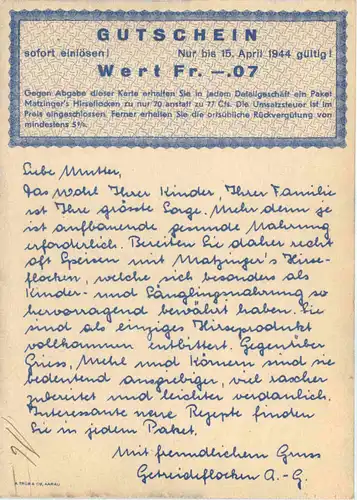 GUTSCHEIN
sofort einlösen! Nur bis 15. April 1944 gültig!
Wert Fr. —.07
Gegen Abgabe dieser Karte erhalten Sie in jedem Detailgeschäft ein Paket
Matzinger's Hirseflocken zu nur 70 anstatt zu 77 Cts. Die Umsatzsteuer ist im
Preis eingeschlossen. Ferner erhalten Sie die ortsübliche Rückvergütung von
mindestens 5%.
Liebe Mutter,
Das Wohl Ihrer Kinder, Ihrer Familie
ist Ihre grösste Sorge. Mehr denn je
ist aufbauende gesunde Nahrung
erforderlich. Bereiten Sie daher recht
oft Speisen mit Matzinger's Hirse-
flocken, welche sich besonders als
Kinder- und Säuglingsnahrung so
hervorragend bewährt haben. Sie
sind als einziges Hirseprodukt
vollkommen entbittert. Gegenüber
Griess, Mehl und Körnern sind sie
bedeutend ausgiebiger, viel rascher
zubereitet und leichter verdaulich.
Interessante neue Rezepte finden
Sie in jedem Paket.
Mit freundlichem Gruss
Getreideflocken A.-G.
AARAU